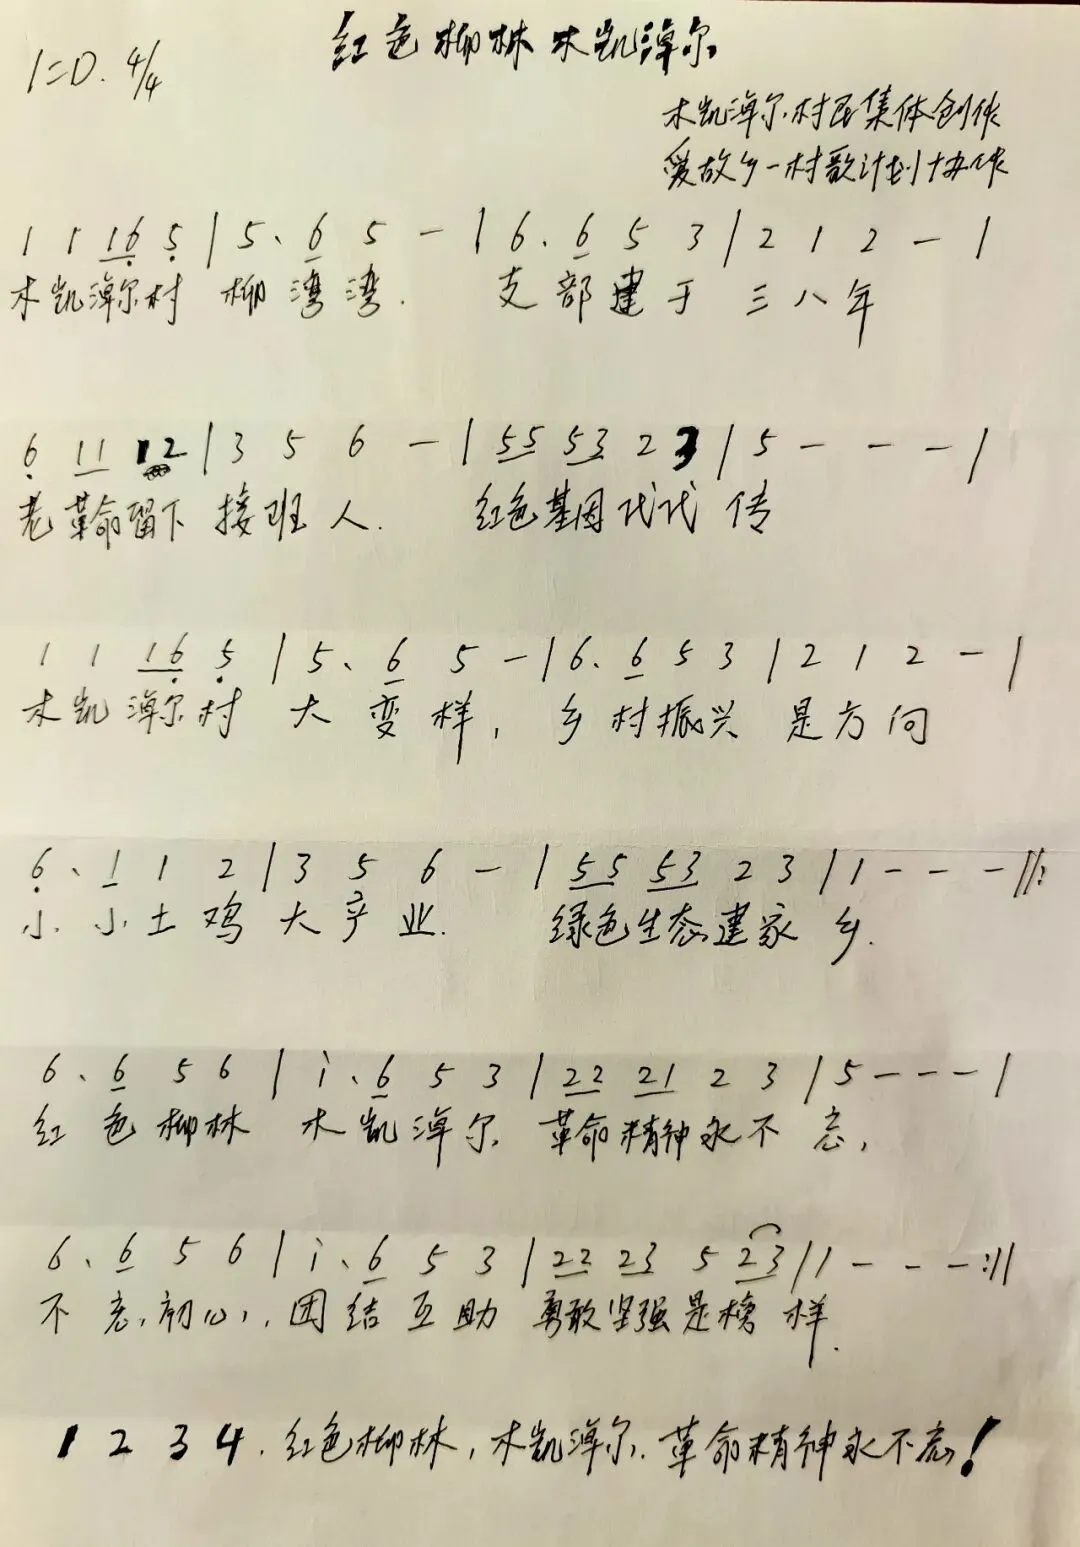 红色柳林木凯淖尔
1=D. 4/4
木凯淖尔村民集体创作
爱故乡一村歌计划协作
1 1 16 5 | 5. 6 5 - | 6. 6 5 3 | 2 1 2 - |
木凯淖尔村 柳湾湾. 支部建于 三八年
6 11 12 | 3 5 6 - | 55 53 2 3 | 5 - - - |
老革命留下 接班人. 红色基因代代 传
1 1 16 5 | 5. 6 5 - | 6. 6 5 3 | 2 1 2 - |
木凯淖尔村 大变样, 乡村振兴 是方向
6. 1 1 2 | 3 5 6 - | 55 53 2 3 | 1 - - - ‖:
小小土鸡 大产业. 绿色生态建家 乡.
6. 6 5 6 | i. 6 5 3 | 22 21 2 3 | 5 - - - |
红色柳林 木凯淖尔 革命精神永不 忘,
6. 6 5 6 | i. 6 5 3 | 22 23 5 23 | 1 - - - :‖
不忘初心, 团结互助 勇敢坚强是榜 样.
1 2 3 4. 红色柳林, 木凯淖尔. 革命精神永不忘!